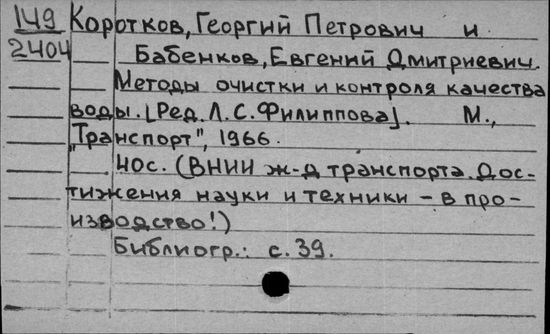 149 Коротков, Георгий Петрович и
2404 Бабенков, Евгений Дмитриевич.
Методы очистки и контроля качества
воды. [Ред. Л. С. Филиппова]. М.,
"Транспорт", 1966.
40с. (ВНИИ ж-д транспорта. Дос-
тижения науки и техники - в про-
изводство!)
Библиогр.: с. 39.